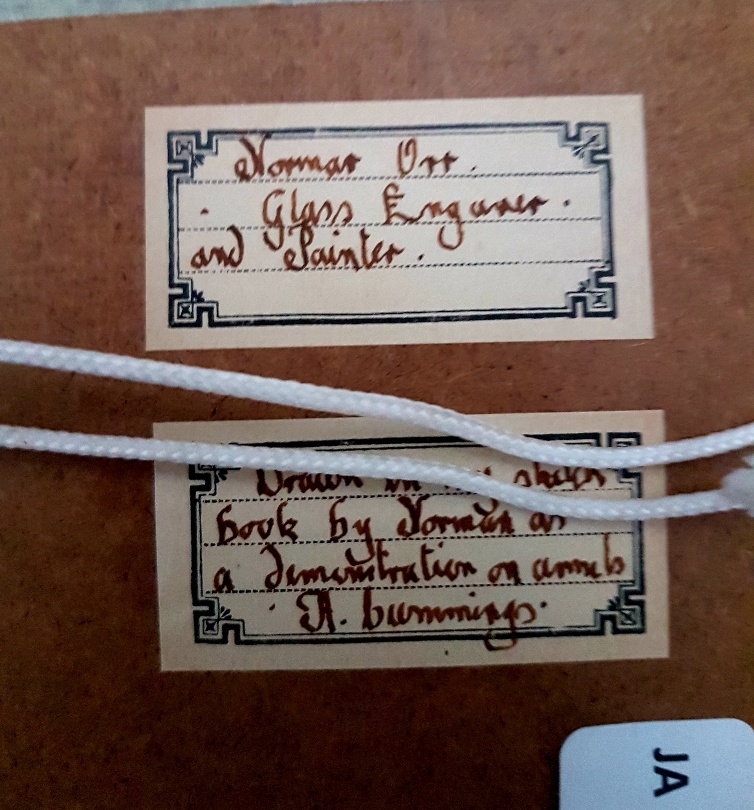 Norman Orr.
· Glass Engraver ·
and Painter.
Drawn in my sketch
book by Norman as
a demonstration on annels
· A. Cummings ·
JA